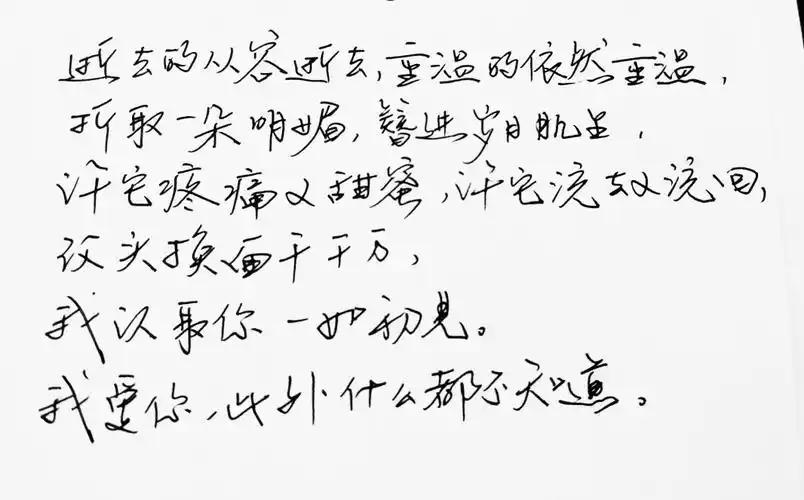 逝去的从容逝去,重温的依然重温,
折取一朵明媚,簪进岁月肌里,
许它疼痛又甜蜜,许它流去又流回,
改头换面千千万,
我认取你一如初见。
我爱你,此外什么都不知道。